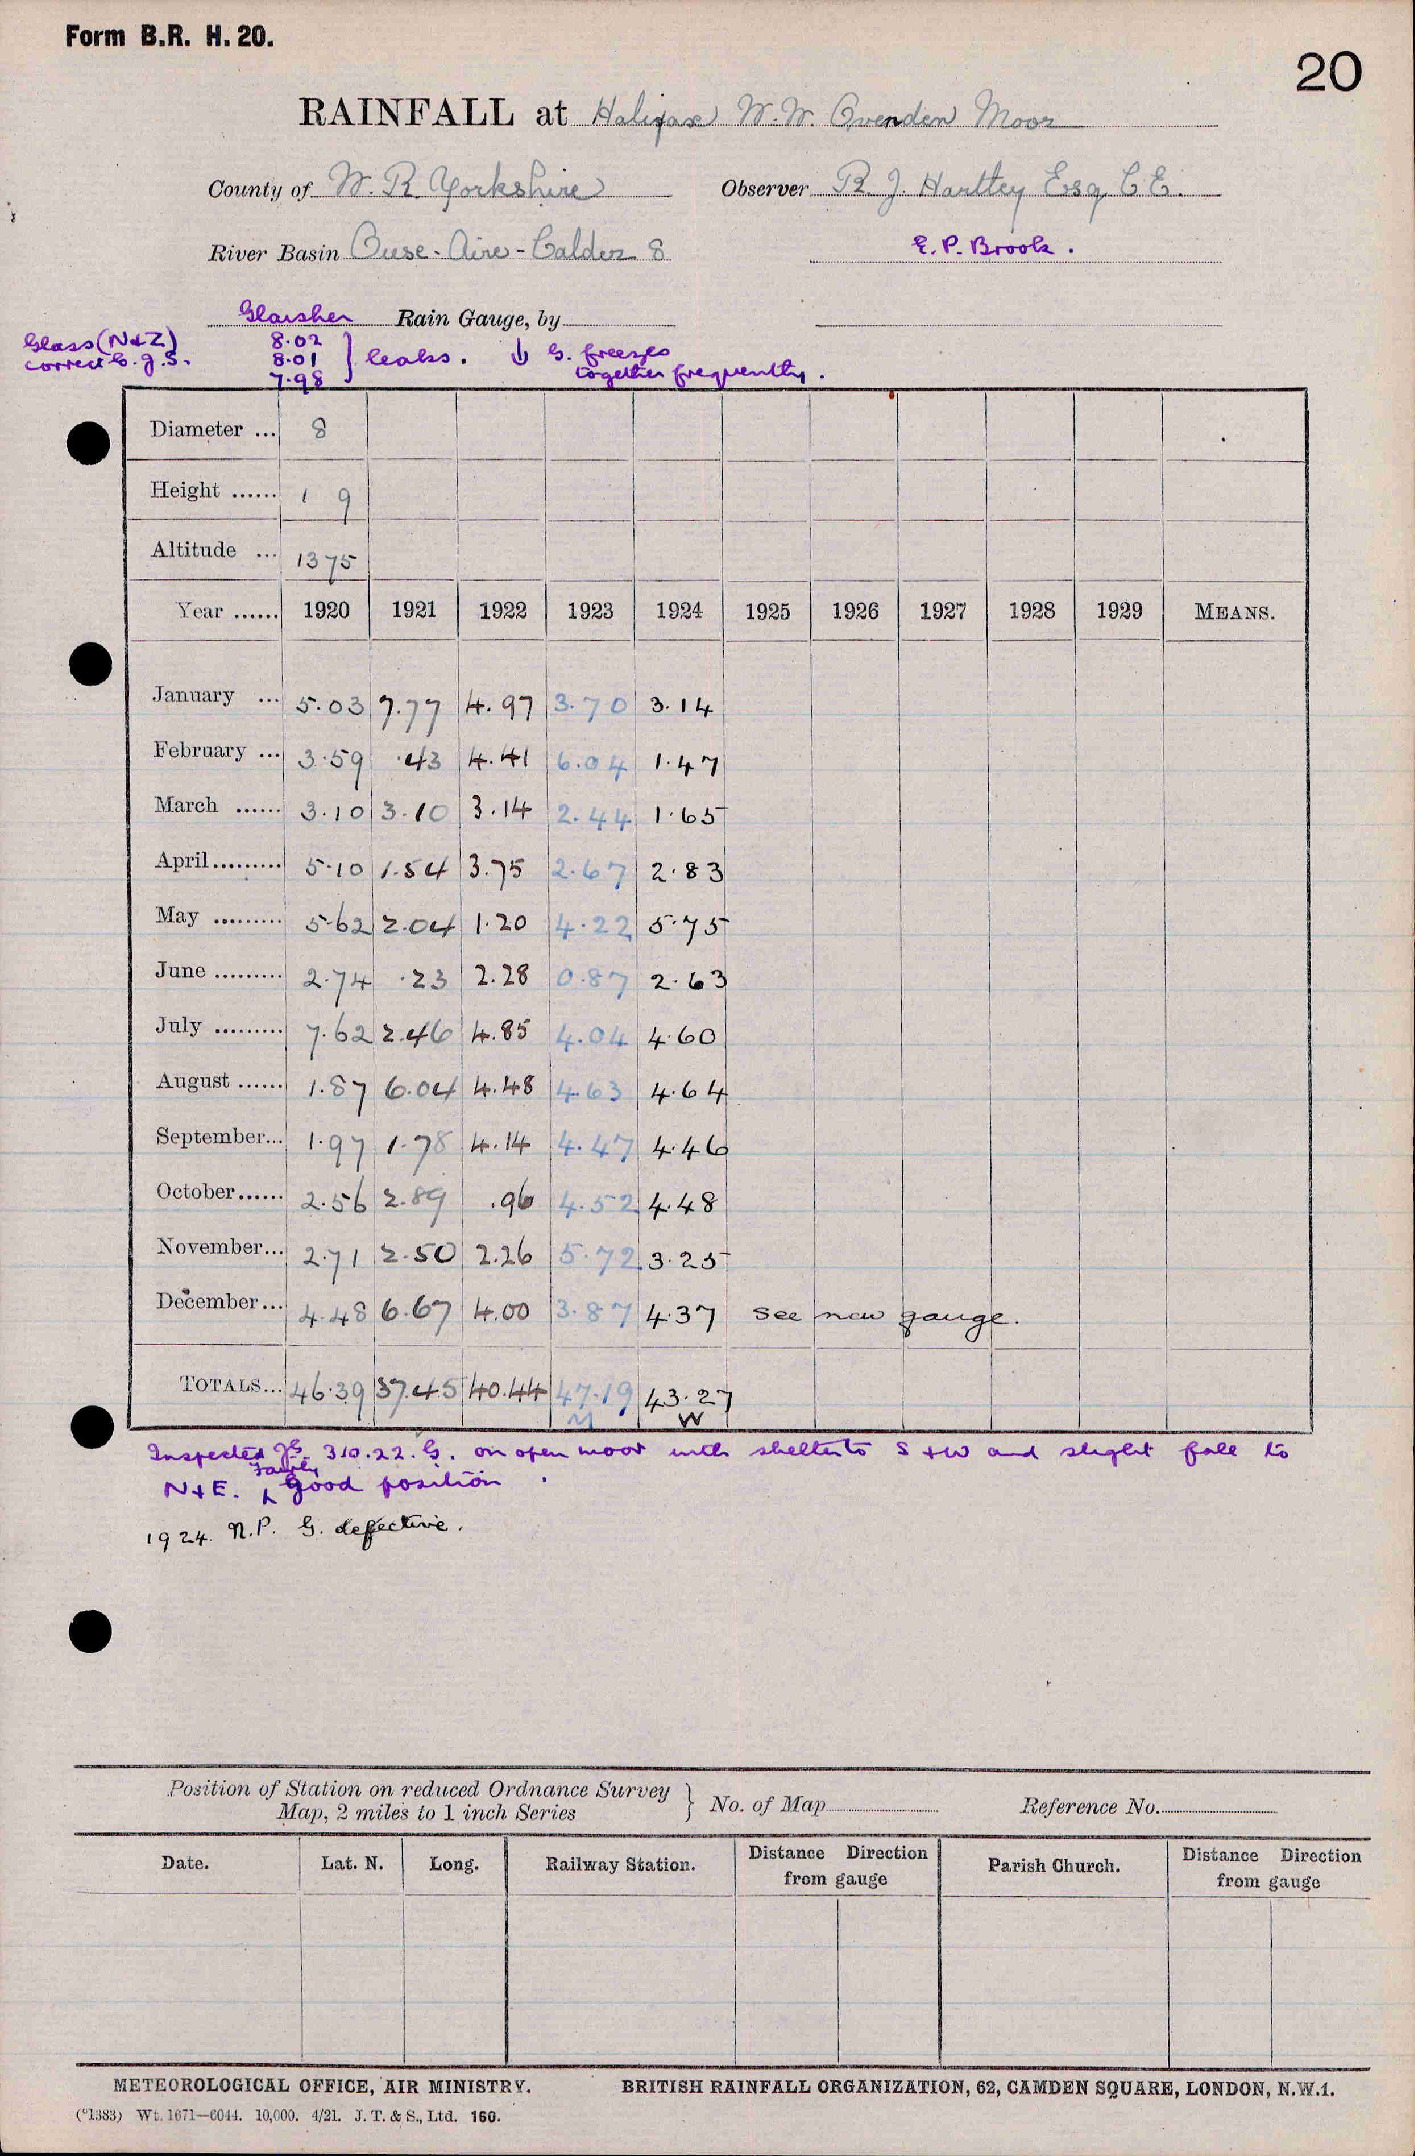 Form B.R. H. 20.
20
RAINFALL at Halifax W.W. Ovenden Moor
County of W. R. Yorkshire Observer R. J. Hartley Esq C.E.
River Basin Ouse-Aire-Calder 8 E. P. Brook.
Glaisher Rain Gauge, by
Glass (N&Z) 8.02
correct b.g.s. 8.01 } leaks. ↓ G. freezes
7.98 together frequently.
Diameter ... 8
Height ...... 1 9
Altitude ... 1375
Year ...... 1920 1921 1922 1923 1924 1925 1926 1927 1928 1929 MEANS.
January ... 5.03 7.77 4.97 3.70 3.14
February ... 3.59 .43 4.41 6.04 1.47
March ...... 3.10 3.10 3.14 2.44 1.65
April......... 5.10 1.54 3.75 2.67 2.83
May ......... 5.62 2.04 1.20 4.22 5.75
June ......... 2.74 .23 2.28 0.87 2.63
July ......... 7.62 2.46 4.85 4.04 4.60
August ...... 1.87 6.04 4.48 4.63 4.64
September... 1.97 1.78 4.14 4.47 4.46
October...... 2.56 2.89 .96 4.52 4.48
November... 2.71 2.50 2.26 5.72 3.25
December... 4.48 6.67 4.00 3.87 4.37 see new gauge.
TOTALS... 46.39 37.45 40.44 47.19 43.27
M W
Inspected 3.10.22. G. on open moor with shelter to S & W and slight fall to
N & E. Fairly good position.
1924. N.P. G. defective.
Position of Station on reduced Ordnance Survey
Map, 2 miles to 1 inch Series } No. of Map Reference No.
Date. Lat. N. Long. Railway Station. Distance Direction from gauge Parish Church. Distance Direction from gauge
METEOROLOGICAL OFFICE, AIR MINISTRY. BRITISH RAINFALL ORGANIZATION, 62, CAMDEN SQUARE, LONDON, N.W.1.
(*1383) Wt. 1671—6044. 10,000. 4/21. J. T. & S., Ltd. 160.